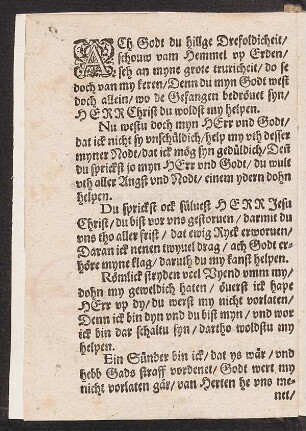 ACh Godt du hillge Drefoldicheit/
schouw vam Hemmel vp Erden/
seh an myne grote truricheit/ do se
doch van my keren/ Denn du myn Godt west
doch allein/ wo de Gefangen bedröuet syn/
HERR Christ du woldst my helpen.
Nu westu doch myn HErr vnd Godt/
dat ick nicht sy vnschüldich/ help my vth desser
myner Nodt/ dat ick mög syn gedüldich/ Deñ
du sprickst jo myn HErr vnd Godt/ du wult
vth aller Angst vnd Nodt/ einem ydern dohn
helpen.
Du sprickst ock süluest HERR Jesu
Christ/ du bist vor vns gestoruen/ darmit du
vns tho aller frist/ dat ewig Ryck erworuen/
Daran ick nenen twyuel drag/ ach Godt er-
höre myne klag/ daruth du my kanst helpen.
Römlick stryden veel Vyend vmm my/
dohn my geweldich haten/ öuerst ick hape
HErr vp dy/ du werst my nicht vorlaten/
Denn ick bin dyn vnd du bist myn/ vnd wor
ick bin dar schaltu syn/ dartho woldstu my
helpen.
Ein Sünder bin ick/ dat ys wär/ vnd
hebb Gads straff vordenet/ Godt wert my
nicht vorlaten gär/ van Herten he vns me-
net/